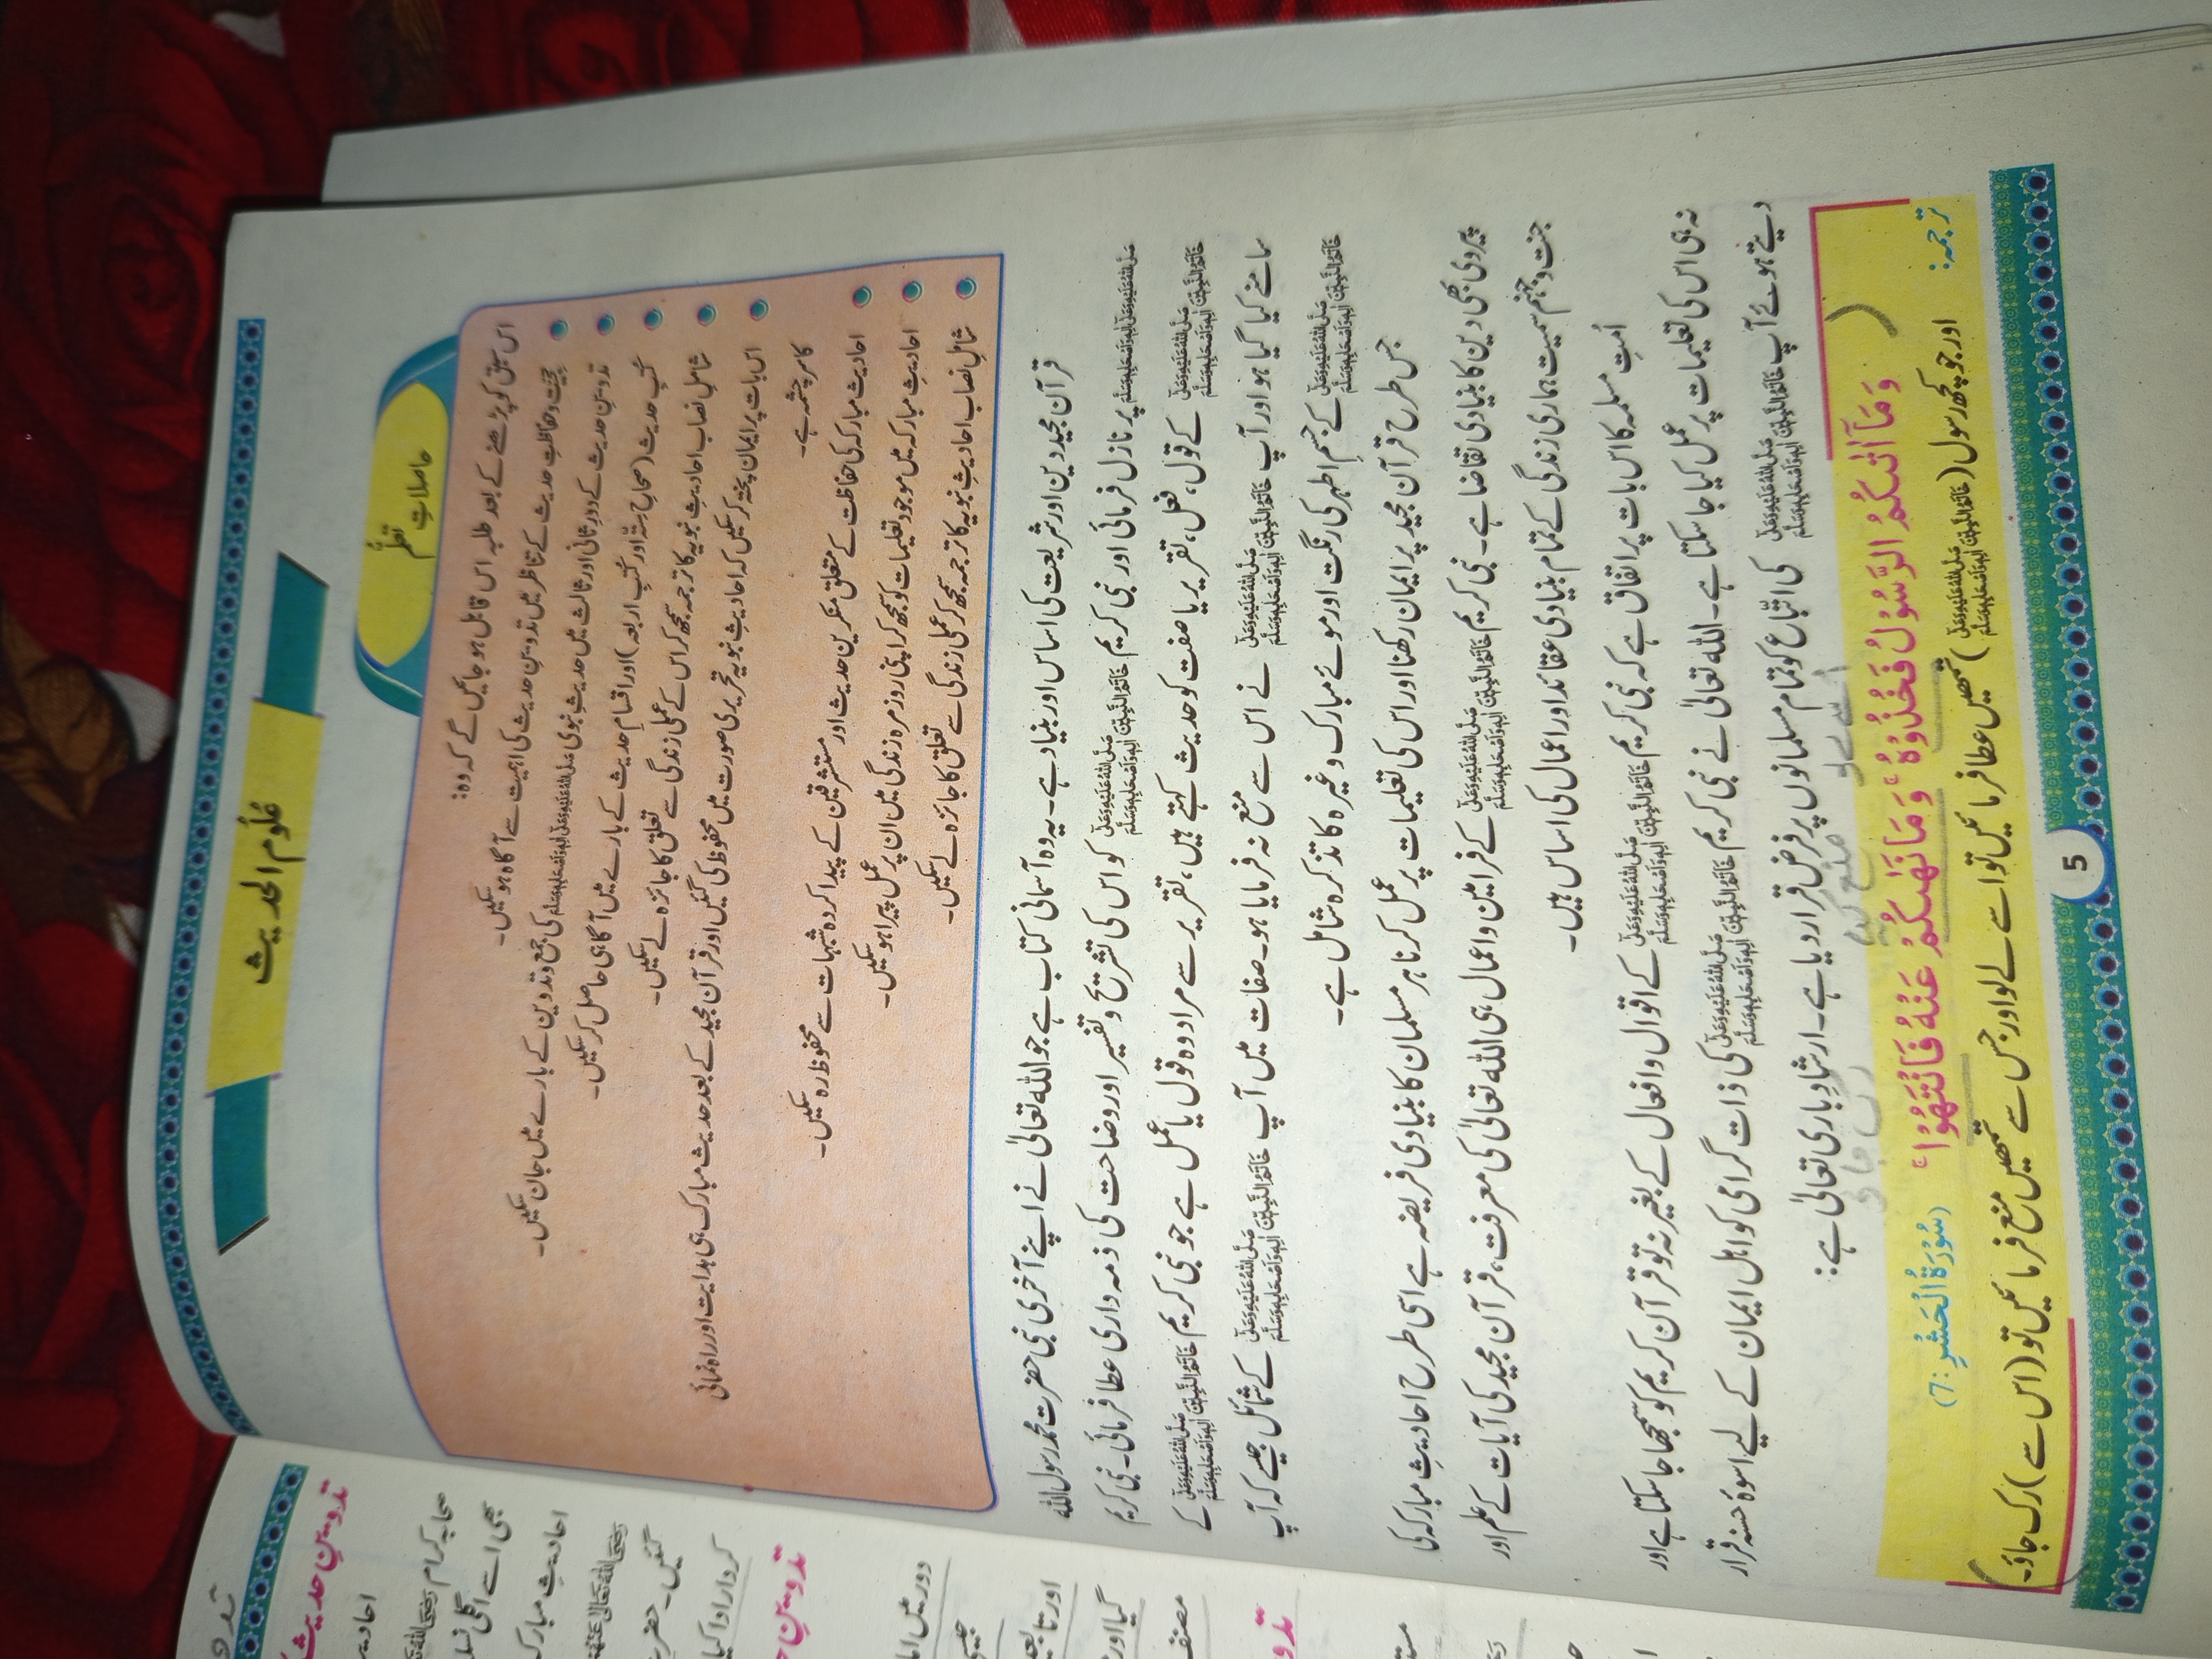 عُلُوم الحدیث
حاصلاتِ تعلُّم
اس سبق کو پڑھنے کے بعد طلبہ اس قابل ہو جائیں گے کہ وہ:
حجیّت و حفاظتِ حدیث کے تناظر میں تدوینِ حدیث کی اہمیت سے آگاہ ہو سکیں۔
تدوینِ حدیث کے دورِ ثانی اور ثالث میں حدیثِ نبوی صَلَّى اللهُ عَلَيْهِ وَعَلٰى اٰلِهٖ وَاَصْحَابِهٖ وَسَلَّمَ کی جمع و تدوین کے بارے میں جان سکیں۔
کُتبِ حدیث (صحاحِ ستّہ اور کُتبِ اربعہ) اور اقسامِ حدیث کے بارے میں آگاہی حاصل کر سکیں۔
شاملِ نصاب احادیثِ نبویہ کا ترجمہ سمجھ کر اس کے عملی زندگی سے تعلق کا جائزہ لے سکیں۔
اس بات پر ایمان پختہ کر سکیں کہ احادیثِ نبویہ تحریری صورت میں محفوظ کی گئیں اور قرآن مجید کے بعد حدیث مبارک ہی ہدایت اور راہ نمائی
کا سرچشمہ ہے۔
احادیث مبارکہ کی حفاظت کے متعلق منکرین حدیث اور مستشرقین کے پیدا کردہ شبہات سے محفوظ رہ سکیں۔
احادیثِ مبارکہ میں موجود تعلیمات کو سمجھ کر اپنی روزمرہ زندگی میں ان پر عمل پیرا ہو سکیں۔
شاملِ نصاب احادیثِ نبویہ کا ترجمہ سمجھ کر عملی زندگی سے تعلق کا جائزہ لے سکیں۔
قرآن مجید دین اور شریعت کی اساس اور بنیاد ہے۔ یہ وہ آسمانی کتاب ہے جو اللہ تعالیٰ نے اپنے آخری نبی حضرت محمد رسول اللہ
خَاتَمُ النَّبِيّٖنَ صَلَّى اللهُ عَلَيْهِ وَعَلٰى اٰلِهٖ وَاَصْحَابِهٖ وَسَلَّمَ پر نازل فرمائی اور نبی کریم خَاتَمُ النَّبِيّٖنَ صَلَّى اللهُ عَلَيْهِ وَعَلٰى اٰلِهٖ وَاَصْحَابِهٖ وَسَلَّمَ کو اس کی تشریح و تفسیر اور وضاحت کی ذمہ داری عطا فرمائی۔ نبی کریم
خَاتَمُ النَّبِيّٖنَ صَلَّى اللهُ عَلَيْهِ وَعَلٰى اٰلِهٖ وَاَصْحَابِهٖ وَسَلَّمَ کے قول، فعل، تقریر یا صفت کو حدیث کہتے ہیں، تقریر سے مراد وہ قول یا عمل ہے جو نبی کریم خَاتَمُ النَّبِيّٖنَ صَلَّى اللهُ عَلَيْهِ وَعَلٰى اٰلِهٖ وَاَصْحَابِهٖ وَسَلَّمَ کے
سامنے کیا گیا ہو اور آپ خَاتَمُ النَّبِيّٖنَ صَلَّى اللهُ عَلَيْهِ وَعَلٰى اٰلِهٖ وَاَصْحَابِهٖ وَسَلَّمَ نے اس سے منع نہ فرمایا ہو۔ صفات میں آپ خَاتَمُ النَّبِيّٖنَ صَلَّى اللهُ عَلَيْهِ وَعَلٰى اٰلِهٖ وَاَصْحَابِهٖ وَسَلَّمَ کے شمائل جیسے کہ آپ
خَاتَمُ النَّبِيّٖنَ صَلَّى اللهُ عَلَيْهِ وَعَلٰى اٰلِهٖ وَاَصْحَابِهٖ وَسَلَّمَ کے جسمِ اطہر کی رنگت اور موئے مبارک وغیرہ کا تذکرہ شامل ہے۔
جس طرح قرآن مجید پر ایمان رکھنا اور اس کی تعلیمات پر عمل کرنا ہر مسلمان کا بنیادی فریضہ ہے اسی طرح احادیثِ مبارکہ کی
پیروی بھی دین کا بنیادی تقاضا ہے۔ نبی کریم خَاتَمُ النَّبِيّٖنَ صَلَّى اللهُ عَلَيْهِ وَعَلٰى اٰلِهٖ وَاَصْحَابِهٖ وَسَلَّمَ کے فرامین و اعمال ہی اللہ تعالیٰ کی معرفت، قرآن مجید کی آیات کے علم اور
جنت و جہنم سمیت ہماری زندگی کے تمام بنیادی عقائد اور اعمال کی اساس ہیں۔
اُمتِ مسلمہ کا اس بات پر اتفاق ہے کہ نبی کریم خَاتَمُ النَّبِيّٖنَ صَلَّى اللهُ عَلَيْهِ وَعَلٰى اٰلِهٖ وَاَصْحَابِهٖ وَسَلَّمَ کے اقوال و افعال کے بغیر نہ تو قرآن کریم کو سمجھا جا سکتا ہے اور
نہ ہی اس کی تعلیمات پر عمل کیا جا سکتا ہے۔ اللہ تعالیٰ نے نبی کریم خَاتَمُ النَّبِيّٖنَ صَلَّى اللهُ عَلَيْهِ وَعَلٰى اٰلِهٖ وَاَصْحَابِهٖ وَسَلَّمَ کی ذات گرامی کو اہل ایمان کے لیے اسوۂ حسنہ قرار
دیتے ہوئے آپ خَاتَمُ النَّبِيّٖنَ صَلَّى اللهُ عَلَيْهِ وَعَلٰى اٰلِهٖ وَاَصْحَابِهٖ وَسَلَّمَ کی اتّباع کو تمام مسلمانوں پر فرض قرار دیا ہے۔ ارشادِ باری تعالیٰ ہے:
وَمَآ اٰتٰىكُمُ الرَّسُوْلُ فَخُذُوْهُ ۚ وَمَا نَهٰىكُمْ عَنْهُ فَانْتَهُوْا ۚ (سُوْرَةُ الْحَشْرِ: 7)
ترجمہ: اور جو کچھ رسول (خَاتَمُ النَّبِيّٖنَ صَلَّى اللهُ عَلَيْهِ وَعَلٰى اٰلِهٖ وَاَصْحَابِهٖ وَسَلَّمَ) تمھیں عطا فرمائیں تو اسے لے لو اور جس سے تمھیں منع فرمائیں تو (اس سے) رُک جاؤ۔
5
تدوینِ حدیث
صحابہ کرام
بھی اسے اگلی
احادیثِ مبارک
گئیں۔ حضرت
کردار ادا کیا
تدوینِ
دور میں
جیسی
اور تابعین
گیا اور
مصنف